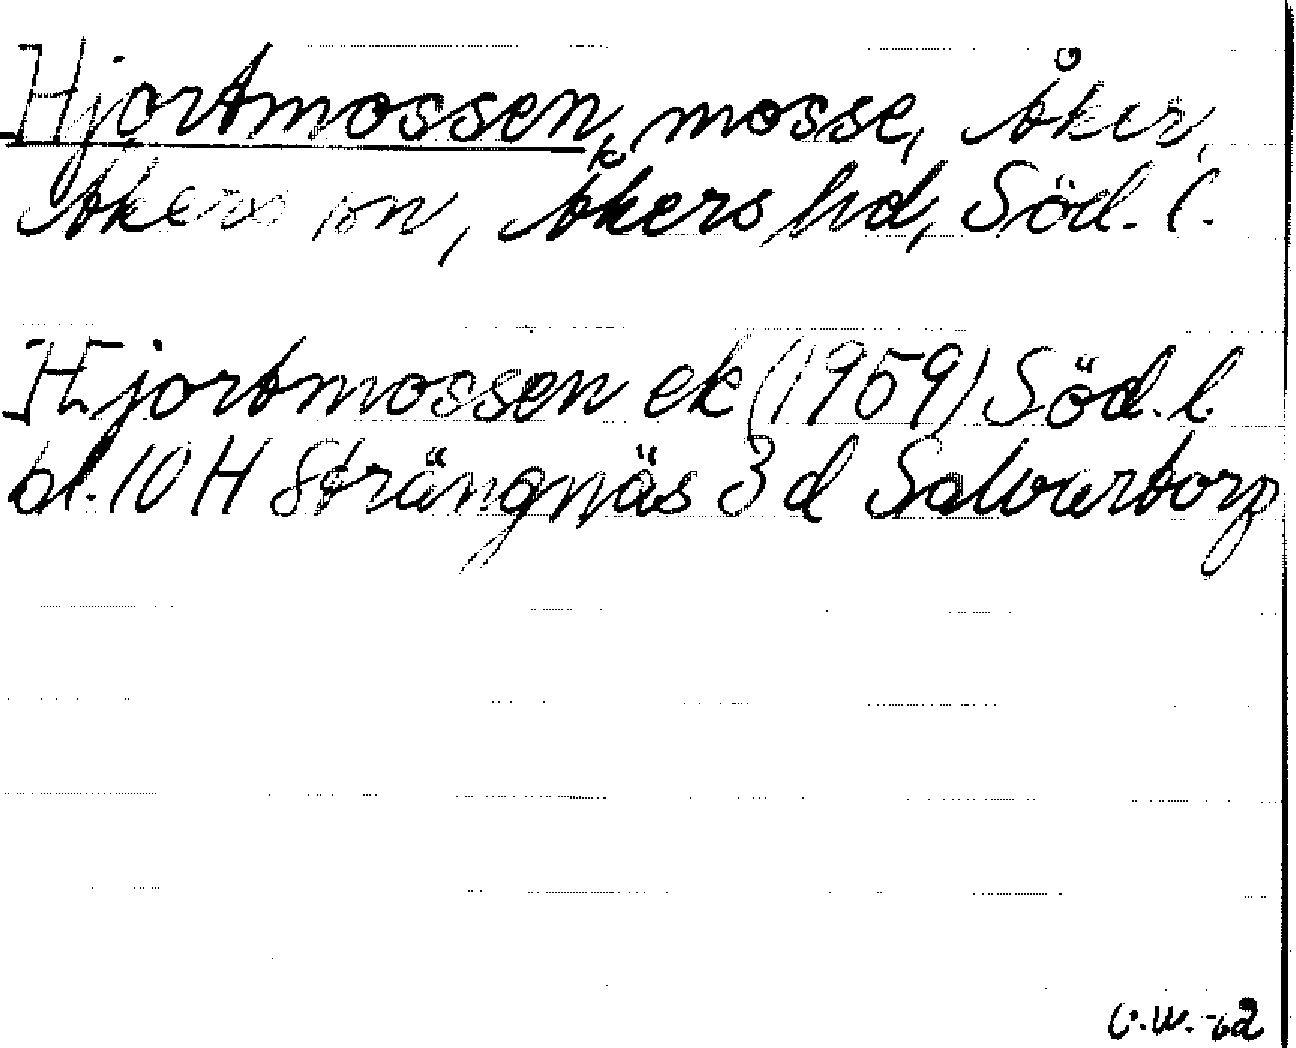 Hjortmossen, mosse, Åker,
Åkers sn, Åkers hd, Söd. l.
Hjortmossen ek (1959) Söd. l.
bl. 10 H Strängnäs 3 d Salvartorp
-62